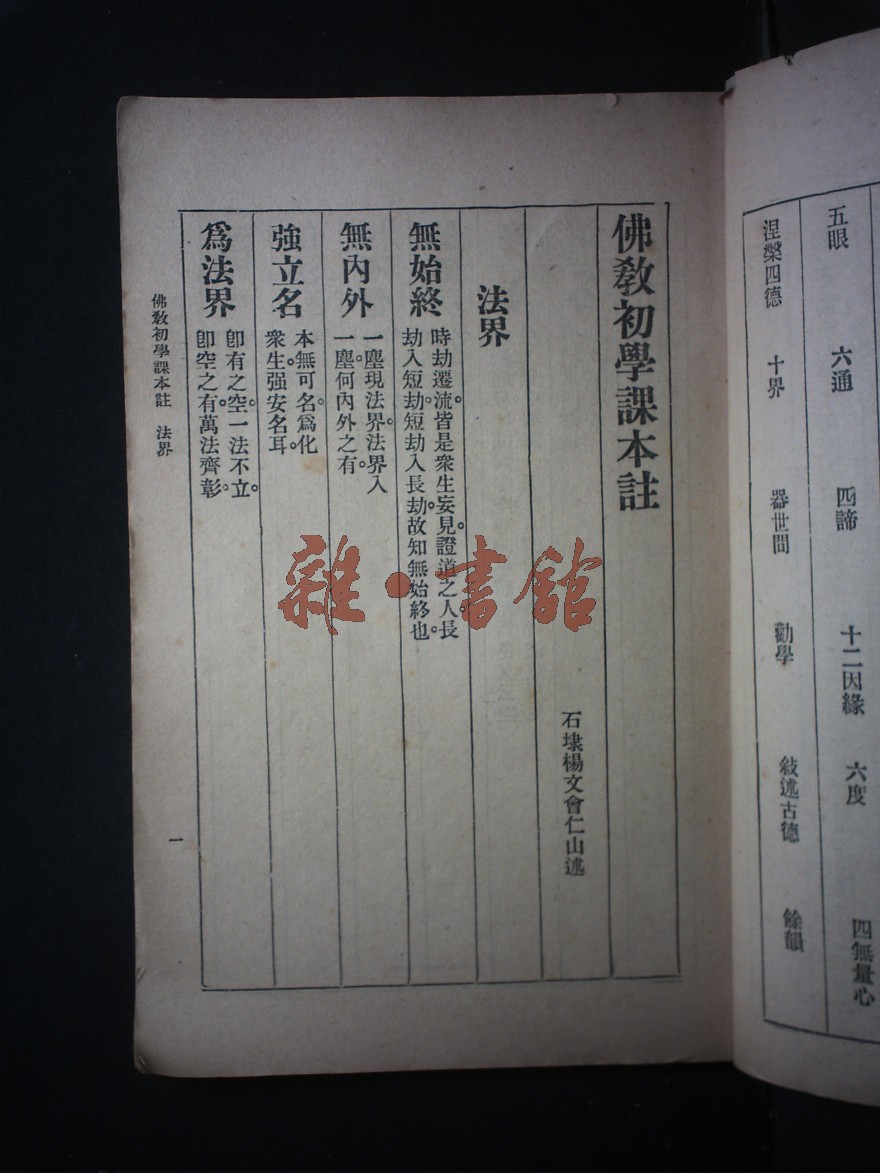 五眼 六通 四諦 十二因緣 六度 四無量心
涅槃四德 十界 器世間 勸學 敍述古德 餘韻
佛敎初學課本註
石埭楊文會仁山述
法界
無始終
時劫遷流。皆是衆生妄見。證道之人。長
劫入短劫。短劫入長劫。故知無始終也
無內外
一塵現法界。法界入
一塵。何內外之有。
強立名
本無可名。爲化
衆生强安名耳。
爲法界
卽有之空。一法不立。
卽空之有。萬法齊彰。
佛敎初學課本註 法界
一
雜·書館